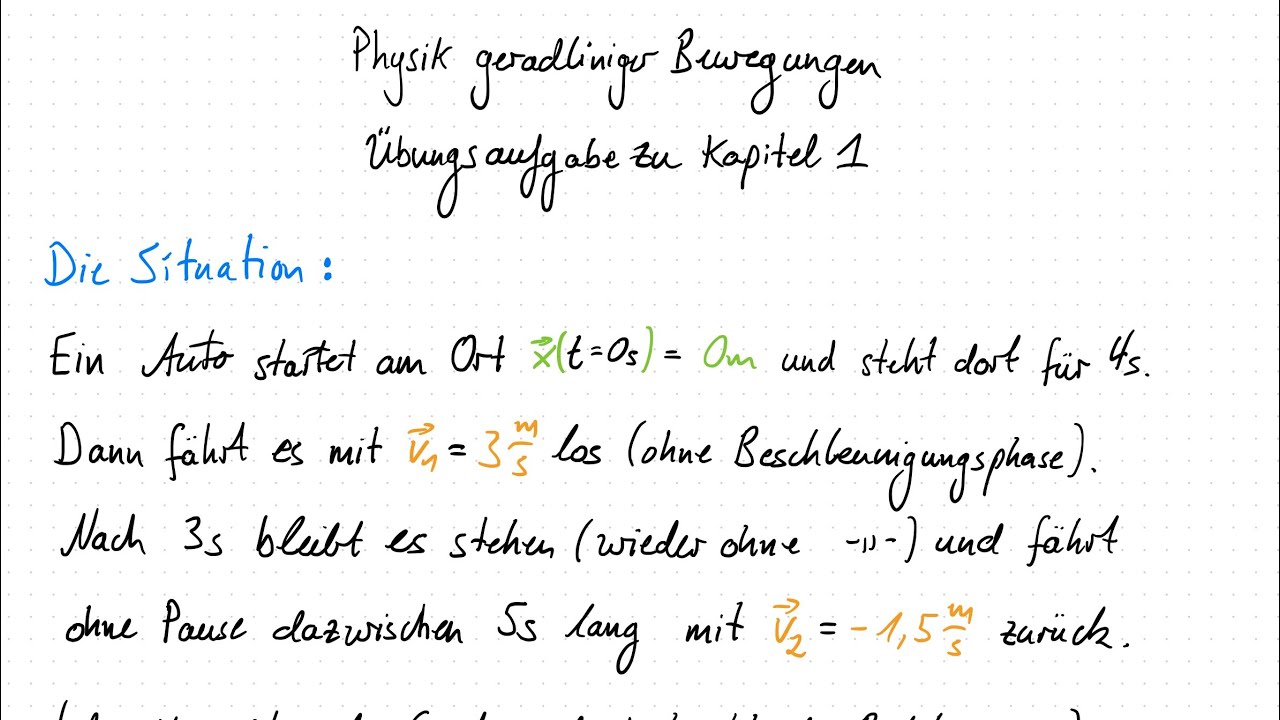 Physik geradliniger Bewegungen
Übungsaufgabe zu Kapitel 1
Die Situation:
Ein Auto startet am Ort x⃗(t=0s) = 0m und steht dort für 4s.
Dann fährt es mit v⃗₁ = 3 m/s los (ohne Beschleunigungsphase).
Nach 3s bleibt es stehen (wieder ohne -"-) und fährt
ohne Pause dazwischen 5s lang mit v⃗₂ = -1,5 m/s zurück.